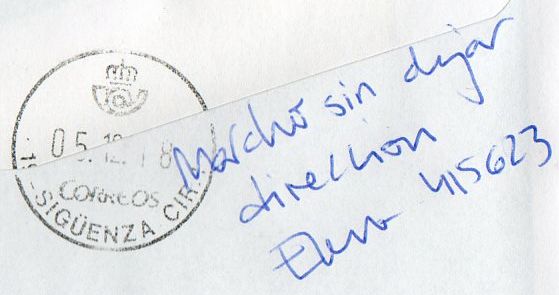 05.12.18
Correos
19-SIGÜENZA CIR
Marchó sin dejar
dirección
Elena 415623